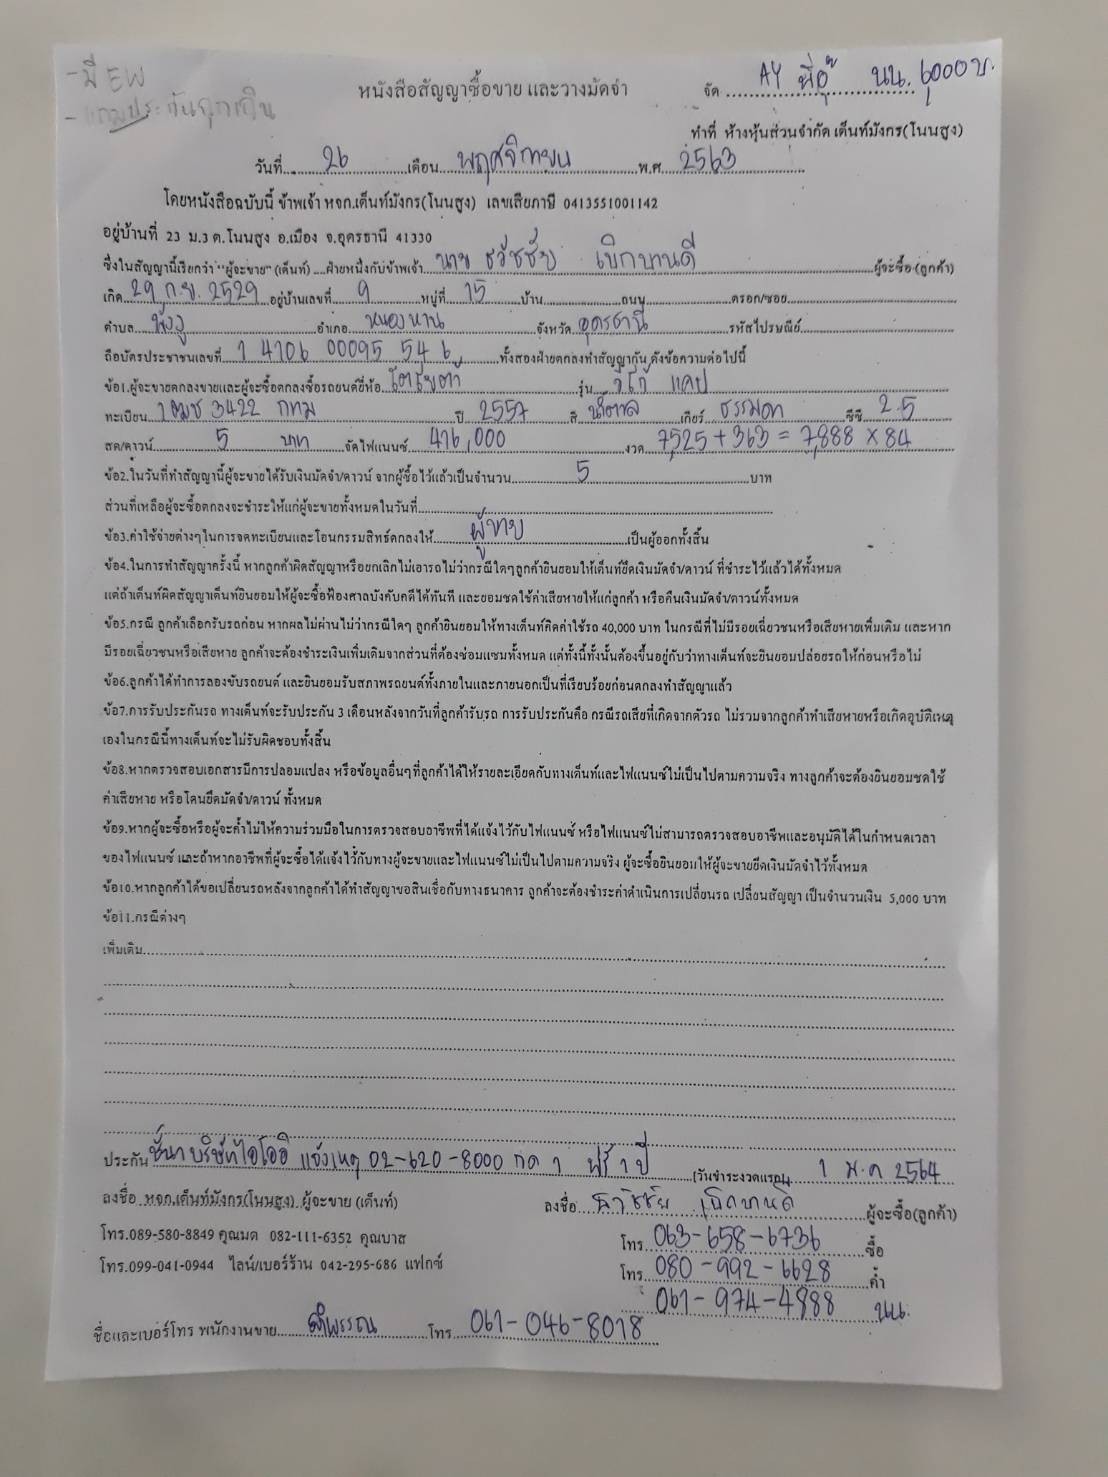 - มี EW
- แถมประกันฉุกเฉิน
หนังสือสัญญาซื้อขาย และวางมัดจำ
จัด AY พี่ปุ๊ นน. 6000 บ.
ทำที่ ห้างหุ้นส่วนจำกัด เต็นท์มังกร(โนนสูง)
วันที่ 26 เดือน พฤศจิกายน พ.ศ. 2563
โดยหนังสือฉบับนี้ ข้าพเจ้า หจก.เต็นท์มังกร(โนนสูง) เลขเสียภาษี 0413551001142
อยู่บ้านที่ 23 ม.3 ต.โนนสูง อ.เมือง จ.อุดรธานี 41330
ซึ่งในสัญญานี้เรียกว่า "ผู้จะขาย" (เต็นท์) ฝ่ายหนึ่งกับข้าพเจ้า นาย ธวัชชัย เบิกบานดี ผู้จะซื้อ (ลูกค้า)
เกิด 29 ก.ย. 2529 อยู่บ้านเลขที่ 9 หมู่ที่ 15 บ้าน ถนน ตรอก/ซอย
ตำบล พังงู อำเภอ หนองหาน จังหวัด อุดรธานี รหัสไปรษณีย์
ถือบัตรประชาชนเลขที่ 1 4106 00095 54 6 ทั้งสองฝ่ายตกลงทำสัญญากัน ดังข้อความต่อไปนี้
ข้อ1.ผู้จะขายตกลงขายและผู้จะซื้อตกลงซื้อรถยนต์ยี่ห้อ โตโยต้า รุ่น วีโก้ แคป
ทะเบียน 1ฒช 3422 กทม ปี 2557 สี น้ำตาล เกียร์ ธรรมดา ซีซี 2.5
สด/ดาวน์ 5 บาท จัดไฟแนนซ์ 416,000 งวด 7,525 + 363 = 7,888 x 84
ข้อ2.ในวันที่ทำสัญญานี้ผู้จะขายได้รับเงินมัดจำ/ดาวน์ จากผู้ซื้อไว้แล้วเป็นจำนวน 5 บาท
ส่วนที่เหลือผู้จะซื้อตกลงจะชำระให้แก่ผู้จะขายทั้งหมดในวันที่
ข้อ3.ค่าใช้จ่ายต่างๆในการจดทะเบียนและโอนกรรมสิทธิ์ตกลงให้ ผู้ขาย เป็นผู้ออกทั้งสิ้น
ข้อ4.ในการทำสัญญาครั้งนี้ หากลูกค้าผิดสัญญาหรือยกเลิกไม่เอารถไม่ว่ากรณีใดๆลูกค้ายินยอมให้เต็นท์ยึดเงินมัดจำ/ดาวน์ ที่ชำระไว้แล้วได้ทั้งหมด
แต่ถ้าเต็นท์ผิดสัญญาเต็นท์ยินยอมให้ผู้จะซื้อฟ้องศาลบังคับคดีได้ทันที และยอมชดใช้ค่าเสียหายให้แก่ลูกค้า หรือคืนเงินมัดจำ/ดาวน์ทั้งหมด
ข้อ5.กรณี ลูกค้าเลือกรับรถก่อน หากผลไม่ผ่านไม่ว่ากรณีใดๆ ลูกค้ายินยอมให้ทางเต็นท์คิดค่าใช้รถ 40,000 บาท ในกรณีที่ไม่มีรอยเฉี่ยวชนหรือเสียหายเพิ่มเติม และหาก
มีรอยเฉี่ยวชนหรือเสียหาย ลูกค้าจะต้องชำระเงินเพิ่มเติมจากส่วนที่ต้องซ่อมแซมทั้งหมด แต่ทั้งนี้ทั้งนั้นต้องขึ้นอยู่กับว่าทางเต็นท์จะยินยอมปล่อยรถให้ก่อนหรือไม่
ข้อ6.ลูกค้าได้ทำการลองขับรถยนต์ และยินยอมรับสภาพรถยนต์ทั้งภายในและภายนอกเป็นที่เรียบร้อยก่อนตกลงทำสัญญาแล้ว
ข้อ7.การรับประกันรถ ทางเต็นท์จะรับประกัน 3 เดือนหลังจากวันที่ลูกค้ารับรถ การรับประกันคือ กรณีรถเสียที่เกิดจากตัวรถ ไม่รวมจากลูกค้าทำเสียหายหรือเกิดอุบัติเหตุ
เองในกรณีนี้ทางเต็นท์จะไม่รับผิดชอบทั้งสิ้น
ข้อ8.หากตรวจสอบเอกสารมีการปลอมแปลง หรือข้อมูลอื่นๆที่ลูกค้าได้ให้รายละเอียดกับทางเต็นท์และไฟแนนซ์ไม่เป็นไปตามความจริง ทางลูกค้าจะต้องยินยอมชดใช้
ค่าเสียหาย หรือโดนยึดมัดจำ/ดาวน์ ทั้งหมด
ข้อ9.หากผู้จะซื้อหรือผู้จะค้ำไม่ให้ความร่วมมือในการตรวจสอบอาชีพที่ได้แจ้งไว้กับไฟแนนซ์ หรือไฟแนนซ์ไม่สามารถตรวจสอบอาชีพและอนุมัติได้ในกำหนดเวลา
ของไฟแนนซ์ และถ้าหากอาชีพที่ผู้จะซื้อได้แจ้งไว้กับทางผู้จะขายและไฟแนนซ์ไม่เป็นไปตามความจริง ผู้จะซื้อยินยอมให้ผู้จะขายยึดเงินมัดจำไว้ทั้งหมด
ข้อ10.หากลูกค้าได้ขอเปลี่ยนรถหลังจากลูกค้าได้ทำสัญญาขอสินเชื่อกับทางธนาคาร ลูกค้าจะต้องชำระค่าดำเนินการเปลี่ยนรถ เปลี่ยนสัญญา เป็นจำนวนเงิน 5,000 บาท
ข้อ11.กรณีต่างๆ
เพิ่มเติม
ประกัน ชั้น1 บริษัทไอโออิ แจ้งเหตุ 02-620-8000 กด 1 ฟรี 1 ปี (วันชำระงวดแรก) 1 ม.ค 2564
ลงชื่อ หจก.เต็นท์มังกร(โนนสูง) ผู้จะขาย (เต็นท์) ลงชื่อ ธวัชชัย เบิกบานดี ผู้จะซื้อ(ลูกค้า)
โทร.089-580-8849 คุณมด 082-111-6352 คุณบาส โทร. 063-658-6736 ซื้อ
โทร.099-041-0944 ไลน์/เบอร์ร้าน 042-295-686 แฟกซ์ โทร. 080-992-6628 ค้ำ
061-974-4888 นน.
ชื่อและเบอร์โทร พนักงานขาย ลำพรรณ โทร. 061-046-8018